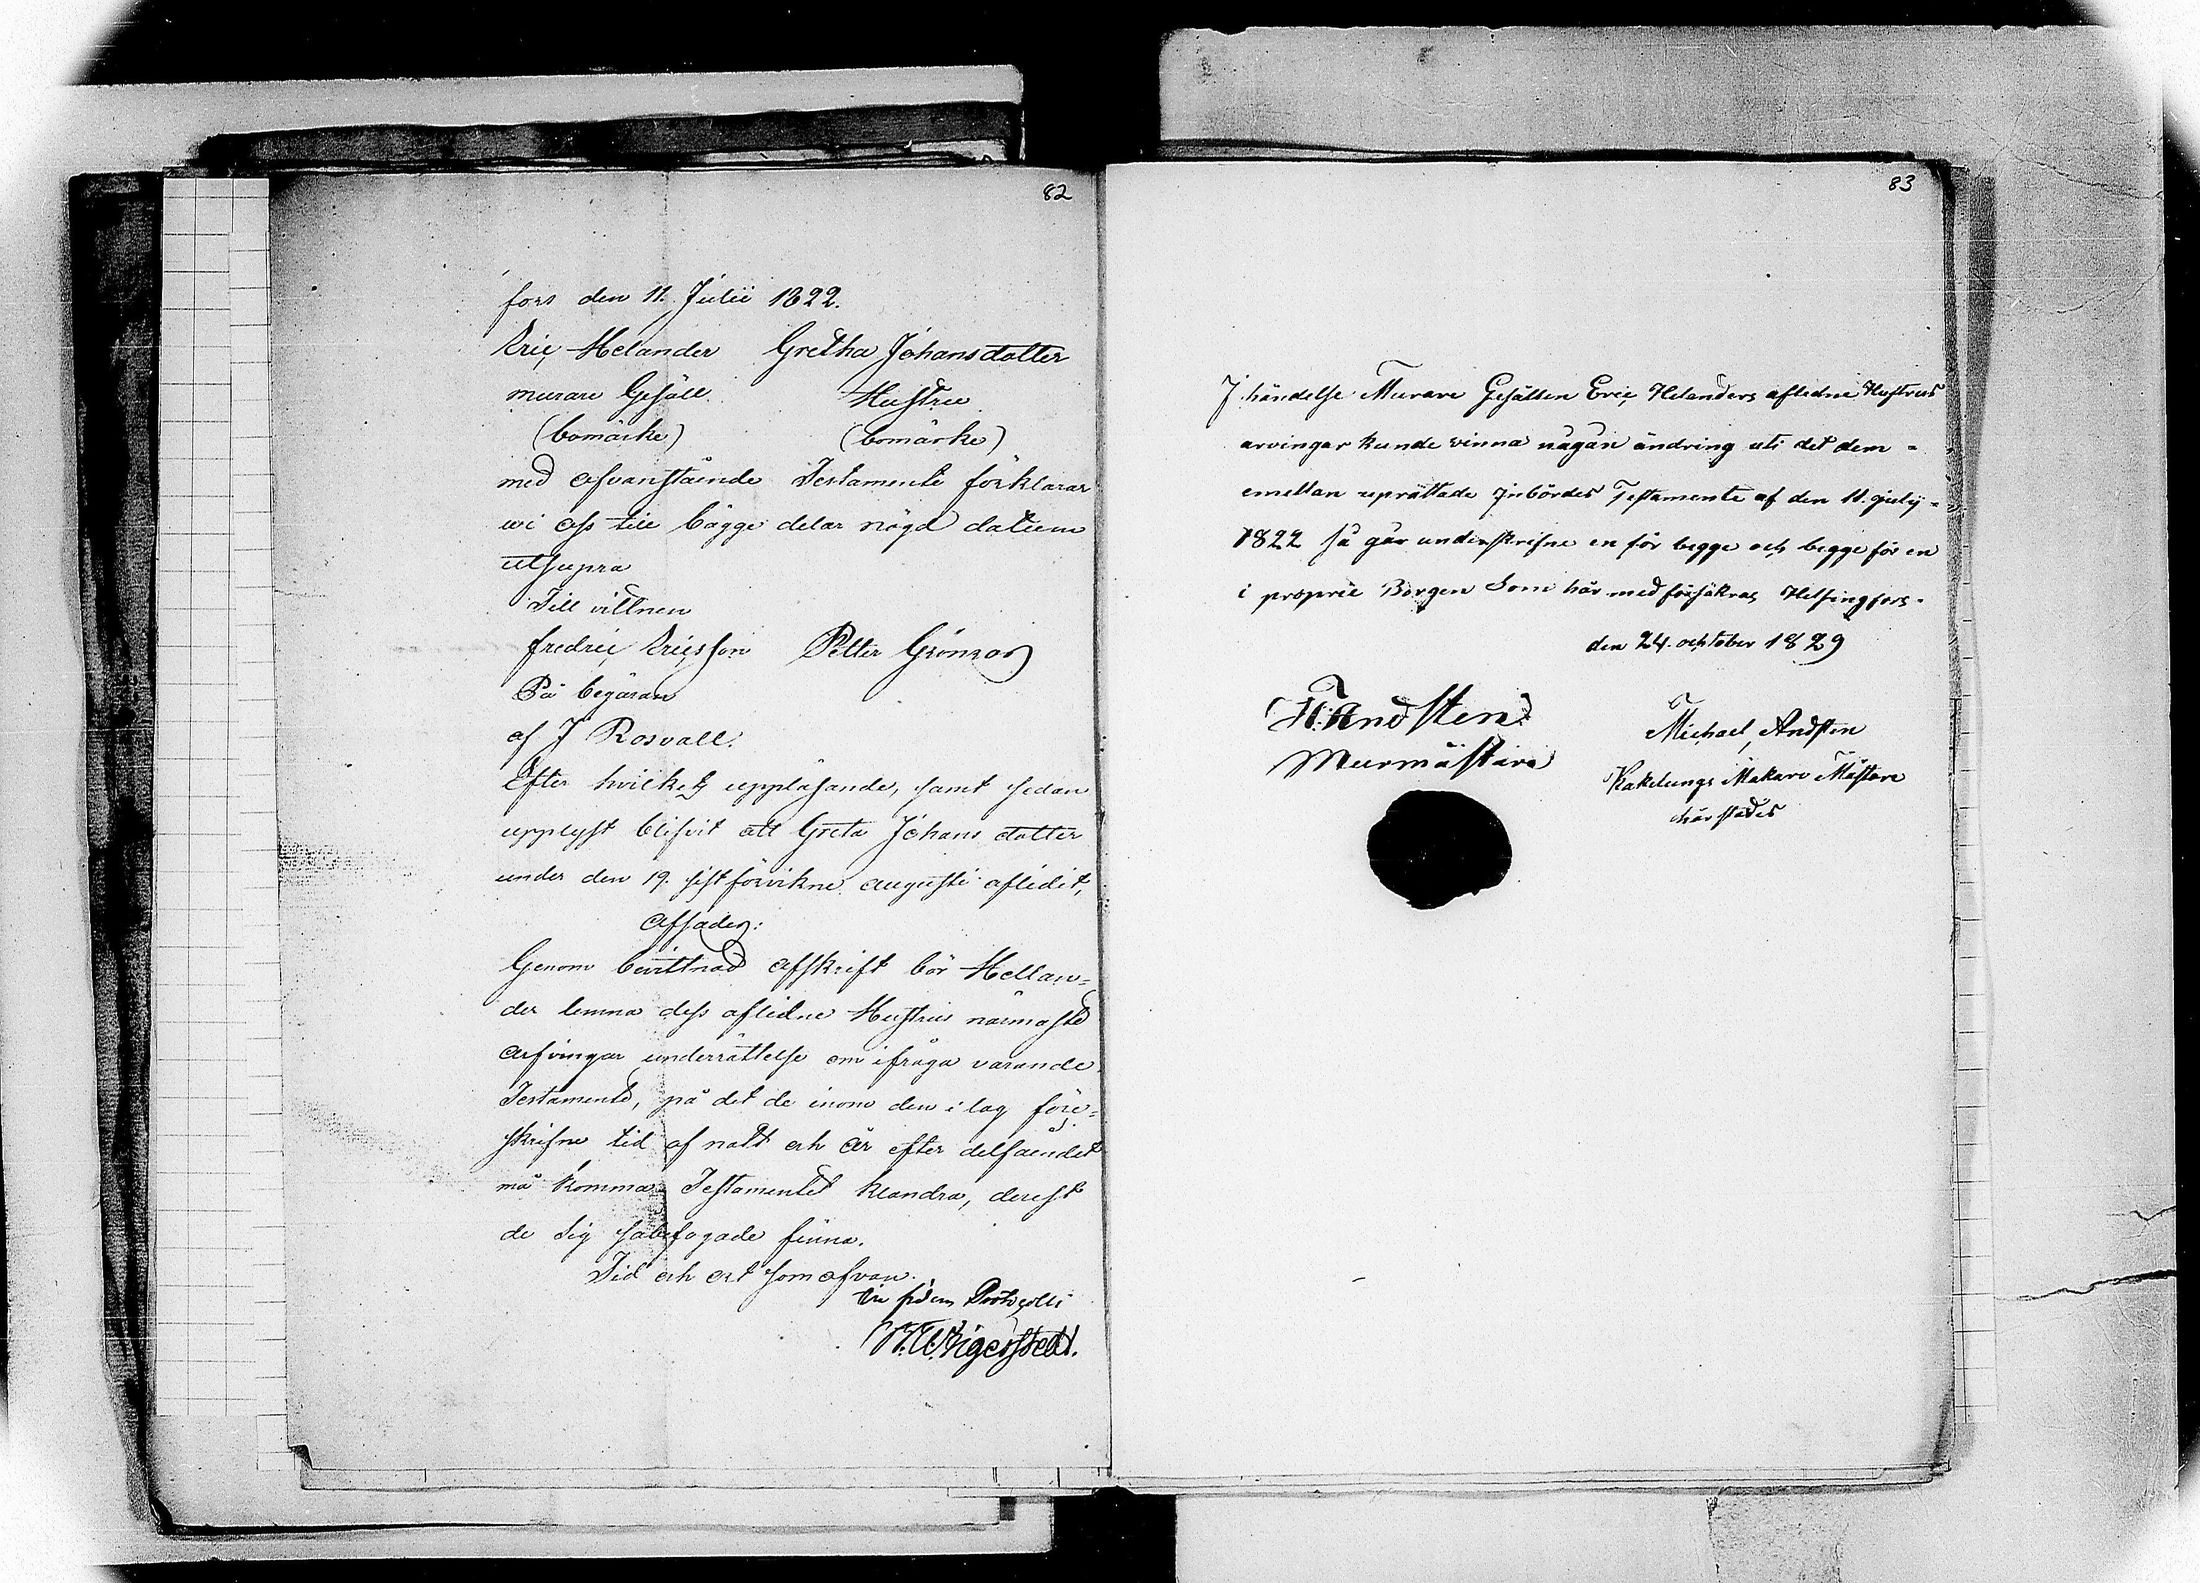 82
fors den 11. Julii 1822.
Eric Helander Gretha Johansdotter
murare Gesäll Hustru
(bomärke) (bomärke)
med ofvanstående Testamente förklarar
wi oss till bägge delar nögd datum
utsupra
Till vittnen
fredric Ericsson Petter Grönroos
På begäran
af J Rosvall.
Efter hvilkets uppläsande, samt sedan
upplyst blifvit att Greta Johans dotter
under den 19. sistförvikne augusti aflidit,
Afsades:
Genom bevittnad afskrift bör Hellan=
der lemna dess aflidne Hustrus närmaste
arfvingar underrättelse om ifråga varande
Testamente, på det de inom den i lag före=
skrifne tid af natt och år efter delfåendet
må komma Testamentet klandra, derest
de sig så befogade finna.
Tid och ort som ofvan.
In fidem Protocolli
83
J händelse Murare Gesällen Eric Helanders afledne Hustrus
arvingar kunde vinna någån ändring uti det dem =
emellan uprättade Jnbördes Testamente af den 11. july =
1822 så går underskrifne en för begge och begge för en
i proprie Borgen Som här med försäkras Helsingfors.
den 24. october 1829
Andsten
Murmästare
Michael Andsten
Kakelungs Makare Mästare
härstädes